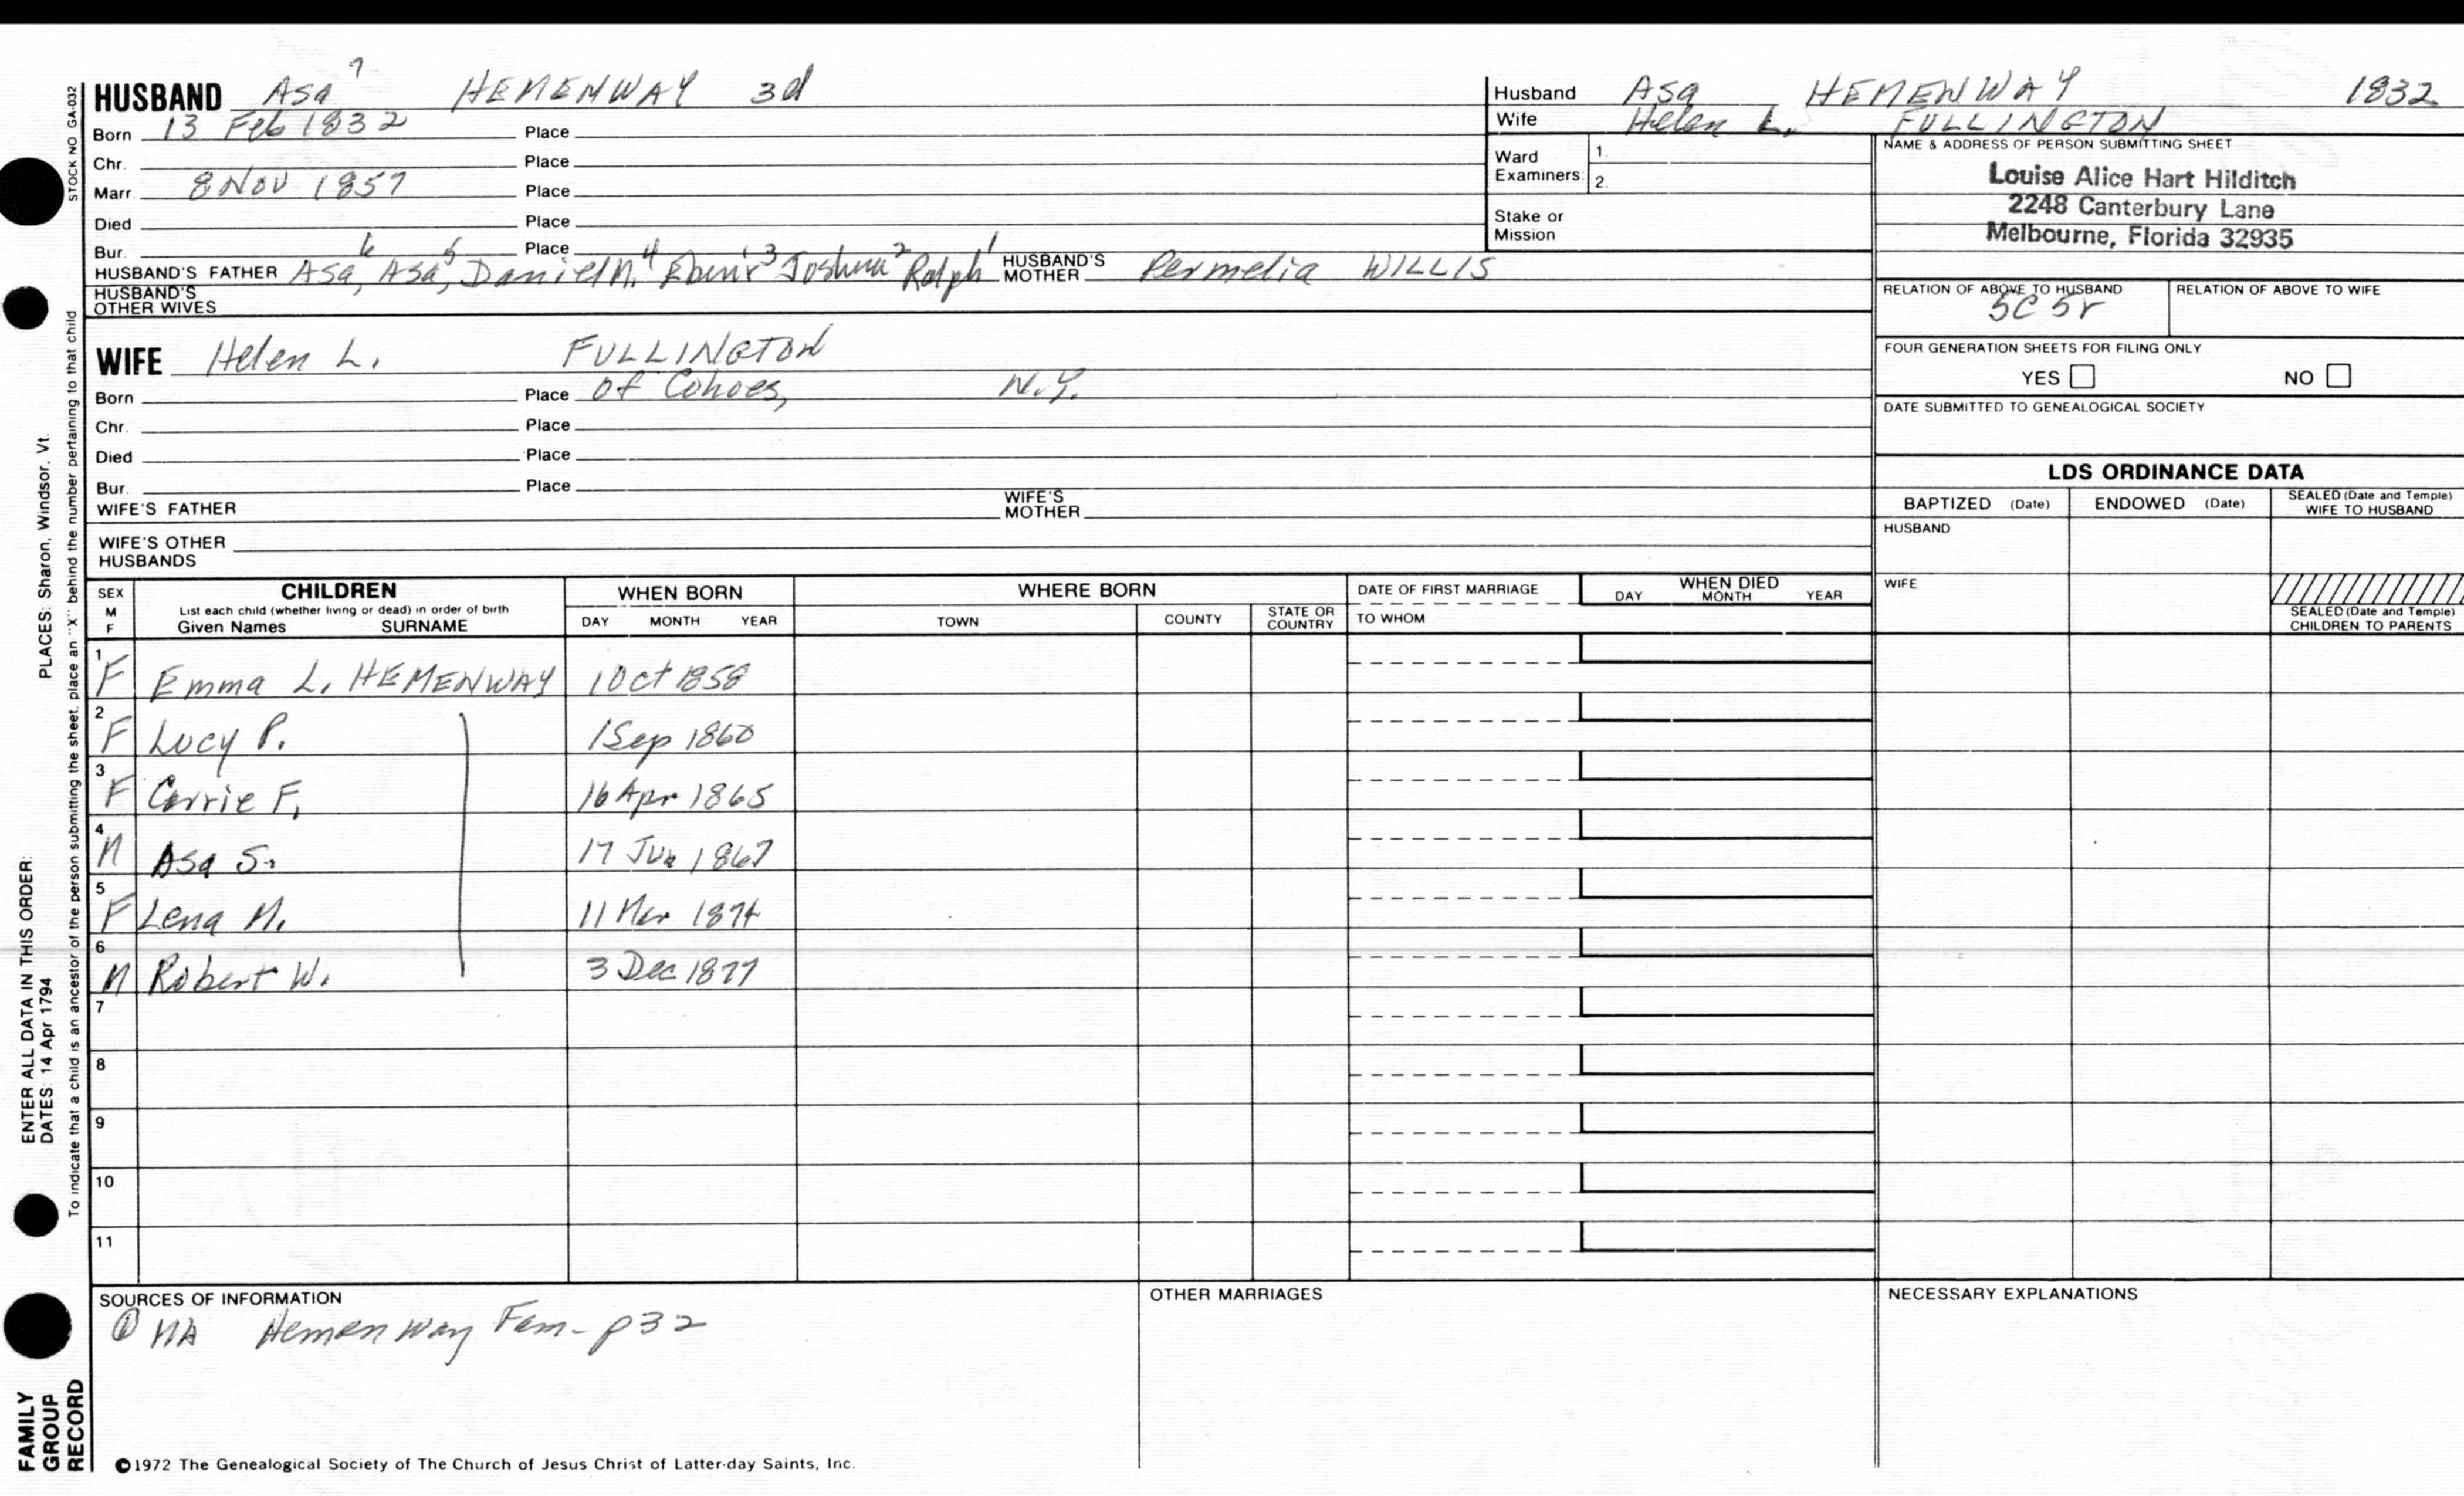 HUSBAND Asa 7 HEMENWAY 3d
Born 13 Feb 1832 Place
Chr. Place
Marr. 8 Nov 1857 Place
Died Place
Bur. Place
HUSBAND'S FATHER Asa 6, Asa 5, Daniel M. 4 Eben'r 3 Joshua 2 Ralph 1 HUSBAND'S MOTHER Permelia WILLIS
HUSBAND'S OTHER WIVES
Husband Asa HEMENWAY 1832
Wife Helen L. FULLINGTON
Ward Examiners: 1. 2.
Stake or Mission
NAME & ADDRESS OF PERSON SUBMITTING SHEET
Louise Alice Hart Hilditch
2248 Canterbury Lane
Melbourne, Florida 32935
RELATION OF ABOVE TO HUSBAND RELATION OF ABOVE TO WIFE
5C 5r
FOUR GENERATION SHEETS FOR FILING ONLY
YES NO
DATE SUBMITTED TO GENEALOGICAL SOCIETY
WIFE Helen L. FULLINGTON
Born Place of Cohoes, N.Y.
Chr. Place
Died Place
Bur. Place
WIFE'S FATHER WIFE'S MOTHER
WIFE'S OTHER HUSBANDS
LDS ORDINANCE DATA
BAPTIZED (Date) ENDOWED (Date) SEALED (Date and Temple) WIFE TO HUSBAND
HUSBAND
WIFE
SEALED (Date and Temple) CHILDREN TO PARENTS
SEX M F CHILDREN WHEN BORN WHERE BORN DATE OF FIRST MARRIAGE WHEN DIED
List each child (whether living or dead) in order of birth
Given Names SURNAME DAY MONTH YEAR TOWN COUNTY STATE OR COUNTRY TO WHOM DAY MONTH YEAR
1 F Emma L. HEMENWAY 1 Oct 1858
2 F Lucy P. 1 Sep 1860
3 F Carrie F. 16 Apr 1865
4 M Asa S. 17 Jun 1867
5 F Lena M. 11 Mar 1874
6 M Robert W. 3 Dec 1877
7
8
9
10
11
SOURCES OF INFORMATION OTHER MARRIAGES NECESSARY EXPLANATIONS
① MA Hemenway Fam- p32
©1972 The Genealogical Society of The Church of Jesus Christ of Latter-day Saints, Inc.
STOCK NO GA-032
To indicate that a child is an ancestor of the person submitting the sheet, place an "X" behind the number pertaining to that child
PLACES: Sharon, Windsor, Vt.
ENTER ALL DATA IN THIS ORDER:
DATES: 14 Apr 1794
FAMILY
GROUP
RECORD